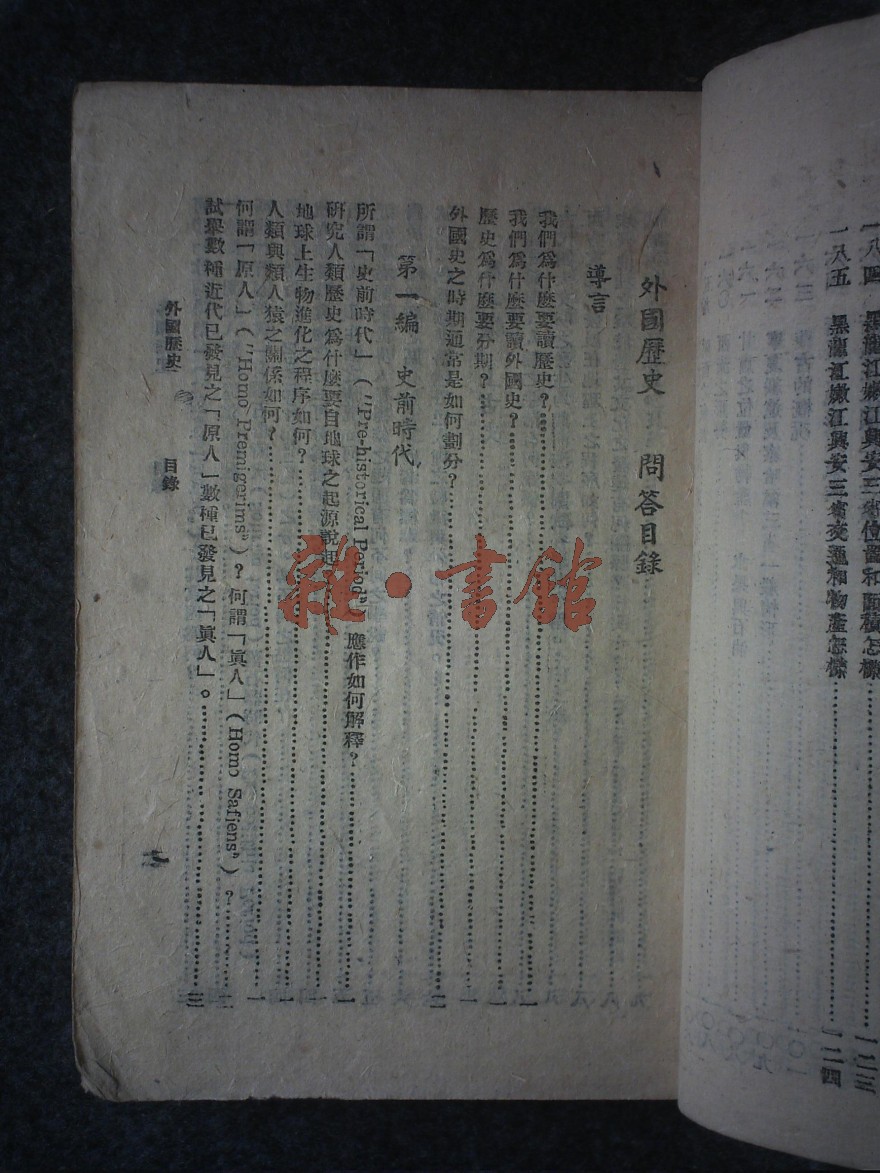 一八四 黑龍江嫩江興安三省位置和面積怎樣……一二三
一八五 黑龍江嫩江興安三省交通和物產怎樣……一二四
外國歷史 問答目錄
導言
我們爲什麼要讀歷史?……一
我們爲什麼要讀外國史?……一
歷史爲什麼要分期?……一
外國史之時期通常是如何劃分?……二
第一編 史前時代
所謂「史前時代」(“Pre-historical Period”)應作如何解釋?……一
研究人類歷史爲什麼要自地球之起源說起……一
地球上生物進化之程序如何?……一
人類與類人猿之關係如何?……一
何謂「原人」(“Homo Premigerims”)?何謂「眞人」(Homo Safiens”)?……二
試舉數種近代已發見之「原人」數種已發見之「眞人」。……三
外國歷史 目錄
雜·書館